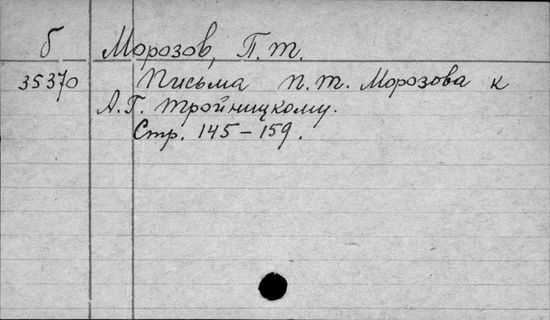 б Морозов, П.т.
35370 Письма п.т. Морозова к
А.Г. Тройницкому.
Стр. 145-159.